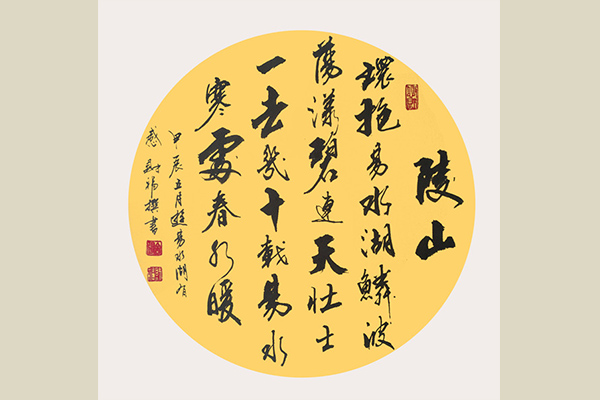 陵山
環抱易水湖鱗波
蕩漾碧連天壮士
一去幾十載易水
寒處春水暖
甲辰五月遊易水湖有
感 福撰書